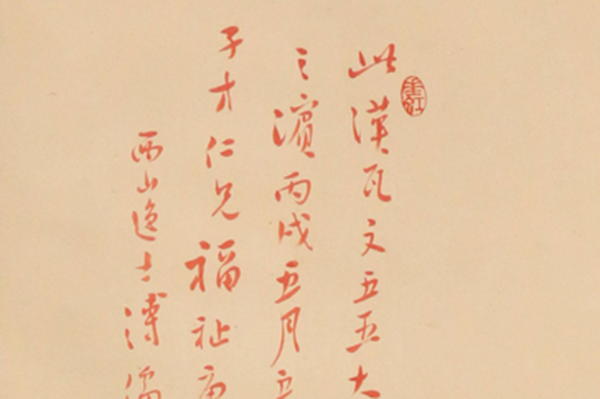 此漢瓦文五五大
之濱丙戌五月
子才仁兄福祉
西山逸士溥儒